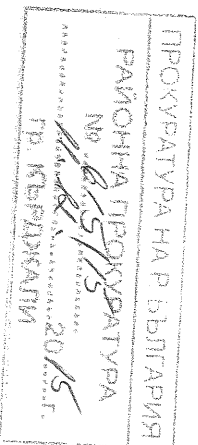 ПРОКУРАТУРА НА Р БЪЛГАРИЯ
РАЙОННА ПРОКУРАТУРА
№
2015 г.
ГР. КЪРДЖАЛИ